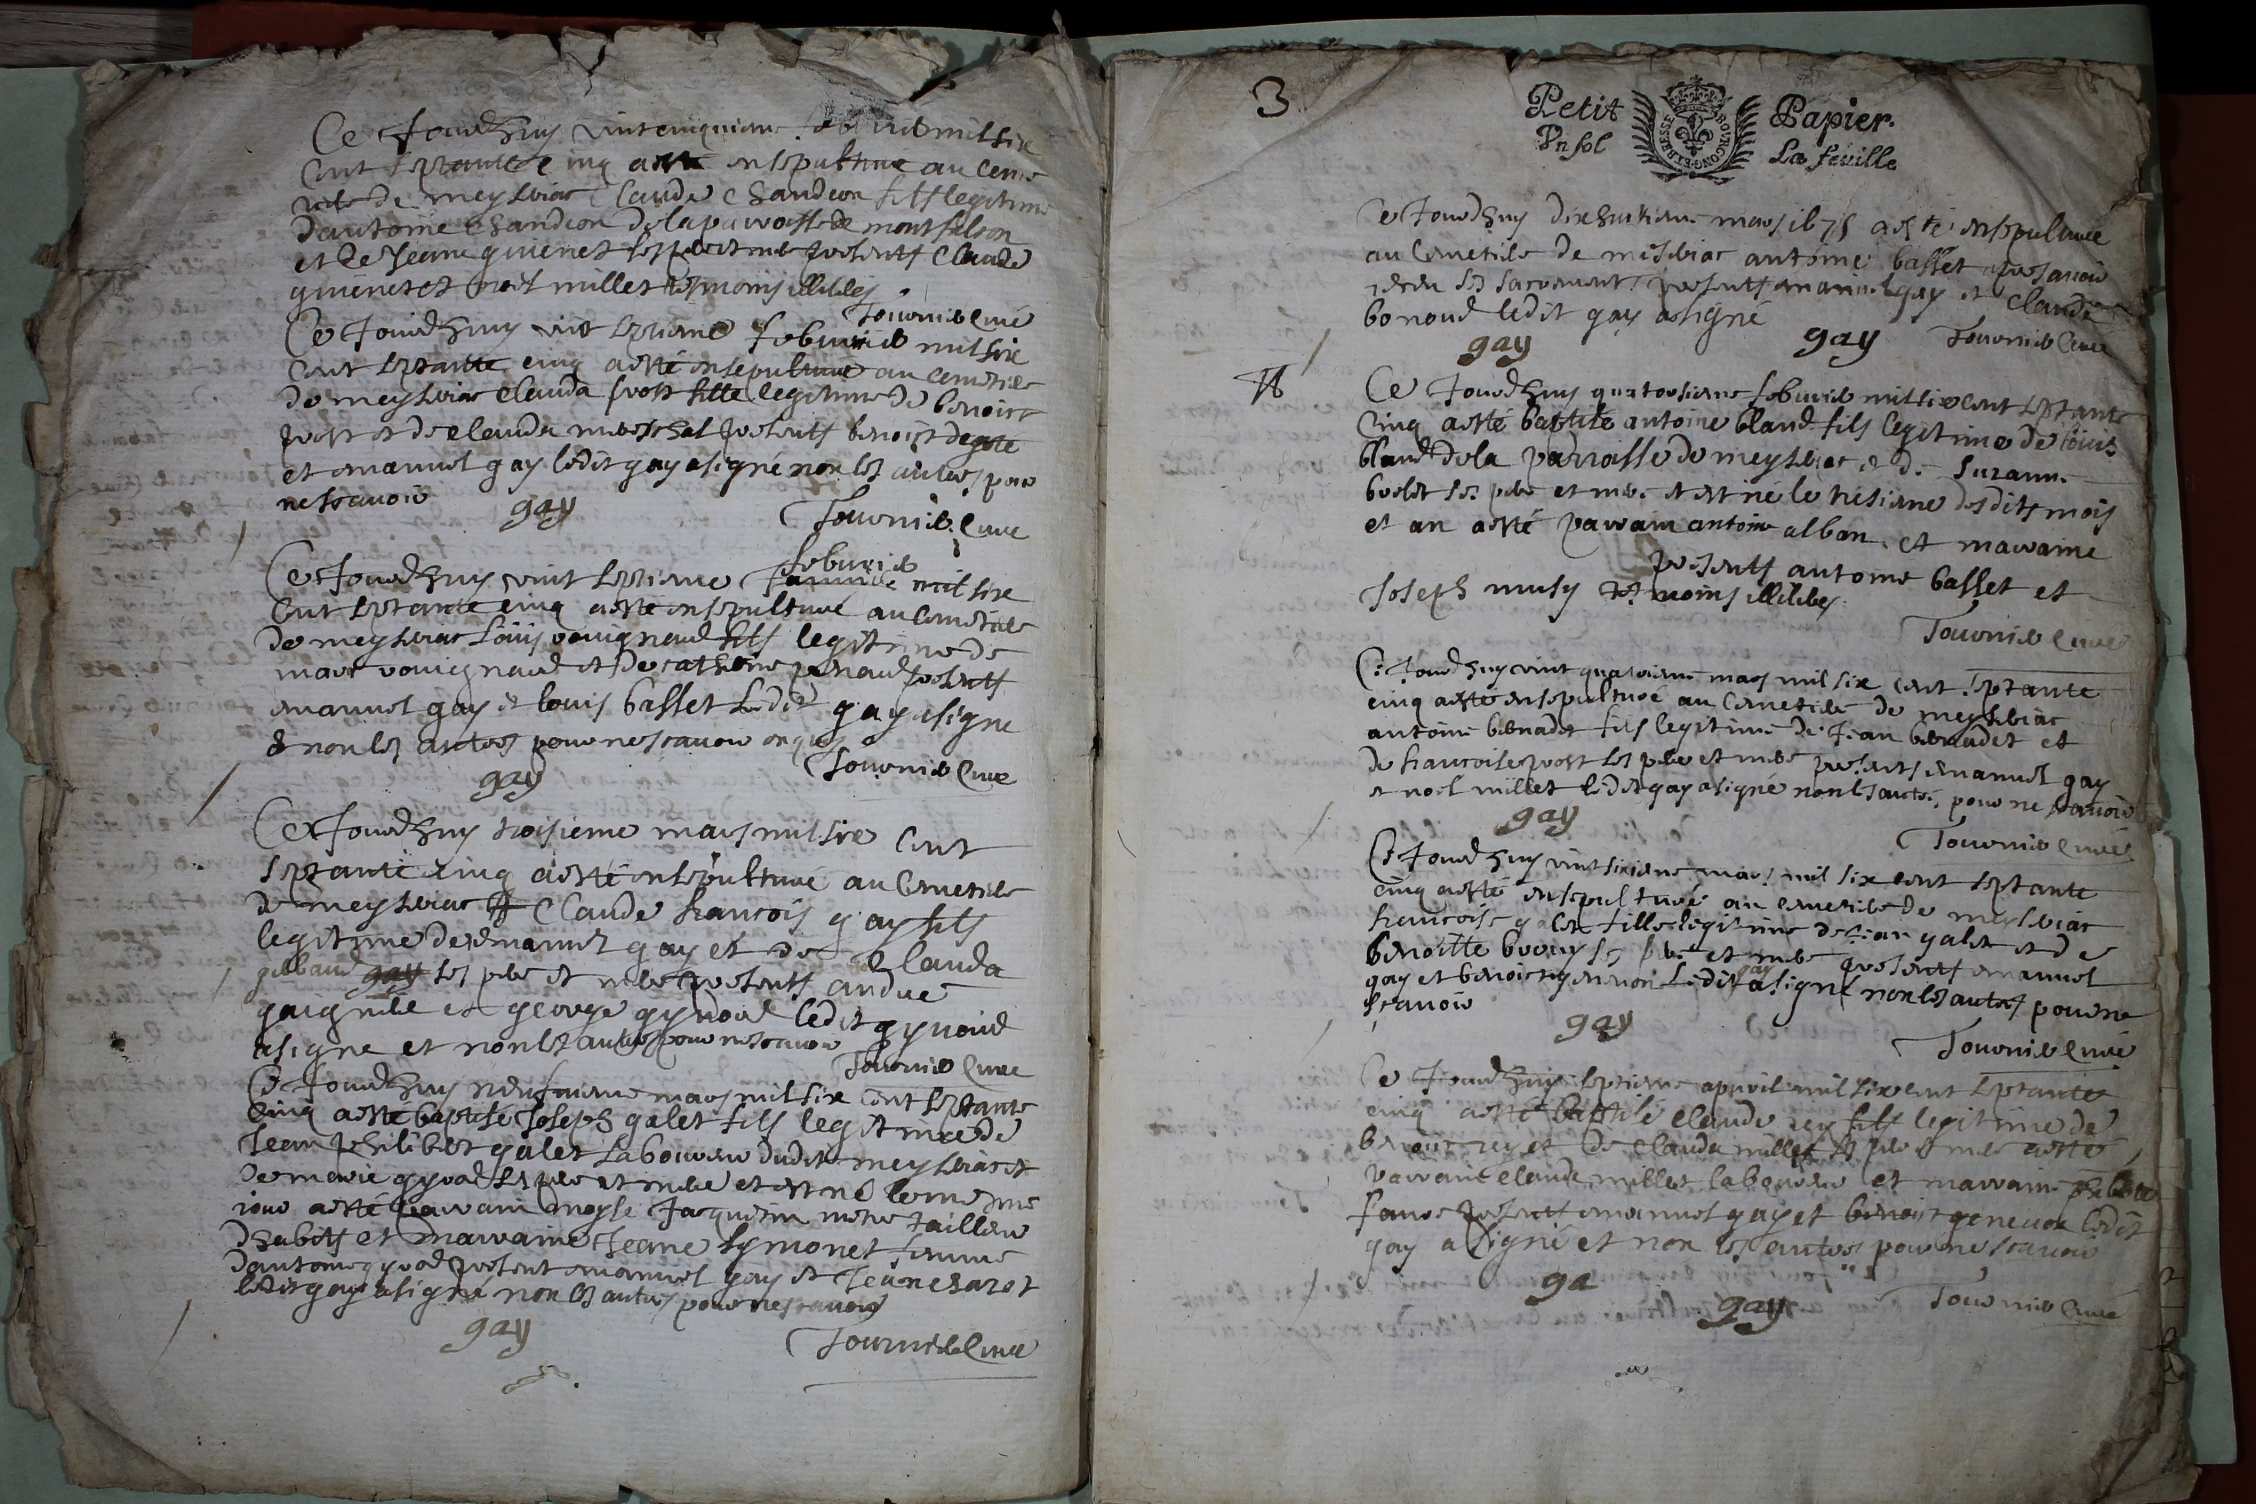 Ce Jourdhuy vint cinquieme feburier mil six
cent septante cinq a esté ensepulture au ceme
tiere de meysériac Claude Chandion fils legitime
dantoine Chandion de la parroisse de montfalcon
et de Jeane guienet ses pere et mere presents Claude
guienet et noel millet tesmoins illiterés
Tournier curé
Ce Jourdhuy vint septieme feburier mil six
cent septante cinq a esté ensepulturé au cemetiere
de meyseriac clauda prost fille legitime de benoict
prost et de clauda mareschal presents benoist
et emanuel gay ledit gay a signé non les autres pour
ne scavoir
gay
Tournier Curé
feburier
Ce Jourdhuy vint septieme mil six
cent septante cinq a esté ensepulturé au cemetiere
de meyseriac Louis fils legitime de
marc et de catherine presents
emanuel gay et louis basset ledit gay a signe
& non les autres pour ne scavoir enquis
Tournier Curé
gay
Ce Jourdhuy troisieme mars mil six cent
septante cinq a esté ensepulturé au Cemetiere
de meyseriac Claude francois gay fils
legitime de emanuel gay et de Clauda
ses pere et mere presents andre
et george ledit
a signe et non les autres pour ne scavoir
Tournier Curé
Ce Jourdhuy neufuieme mars mil six cent septante
cinq a esté baptisé Joseph galet fils legitime de
Jean philibert galet laboureur dudit meyseriac et
de marie ses pere et mere et est né le mesme
jour a esté parrain moyse Jacquemin metre tailleur
dhabits et marraine Jeane symonet femme
dantoine present emanuel gay et
ledit gay a signé non les autres pour ne scavoir
gay
Tournier Curé
3
Petit Papier.
Vn sol La feuille
BOVRGONG·ET BRESSE
Ce Jourdhuy dixhuitieme mars 1675 a esté ensepulturé
au Cemetiere de miseriac antoine basset apres avoir
receu ses sacrements presents emanuel gay et Claude
bonoud ledit gay a signé
gay gay Tournier Curé
Ce Jourdhuy quatorsieme feburier mil six cent septante
cinq a esté baptisé antoine bland fils legitime de louis
bland de la parroisse de meyseriac et de Suzanne
ses pere et mere et est né le tresieme desdits mois
et an a esté parrain antoine alban et marraine
presents antoine basset et
Joseph musy tesmoins illiterés
Tournier Curé
Ce Jourdhuy vint quatrieme mars mil six cent septante
cinq a esté ensepulturé au Cemetiere de meyseriac
antoine bernadet fils legitime de Jean bernadet et
de francoise prost ses pere et mere presents emanuel gay
et noel millet ledit gay a signé non les autres pour ne scavoir
gay
Tournier Curé
Ce Jourdhuy vint sixieme mars mil six cent septante
cinq a esté ensepulturé au cemetiere de meyseriac
francoise galet fille legitime de Jean galet et de
benoitte ses pere et mere presents emanuel
gay et benoict genevon Ledit gay a signé non les autres pour ne
scavoir
gay
Tournier Curé
Ce Jourdhuy septieme apvril mil six cent septante
cinq a esté baptisé claude rey fils legitime de
benoict rey et de Clauda millet ses pere et mere a esté
parrain claude millet laboureur et marraine
presents emanuel gay et benoist genevon ledit
gay a signé et non les autres pour ne scavoir
ga
gay
Tournier Curé